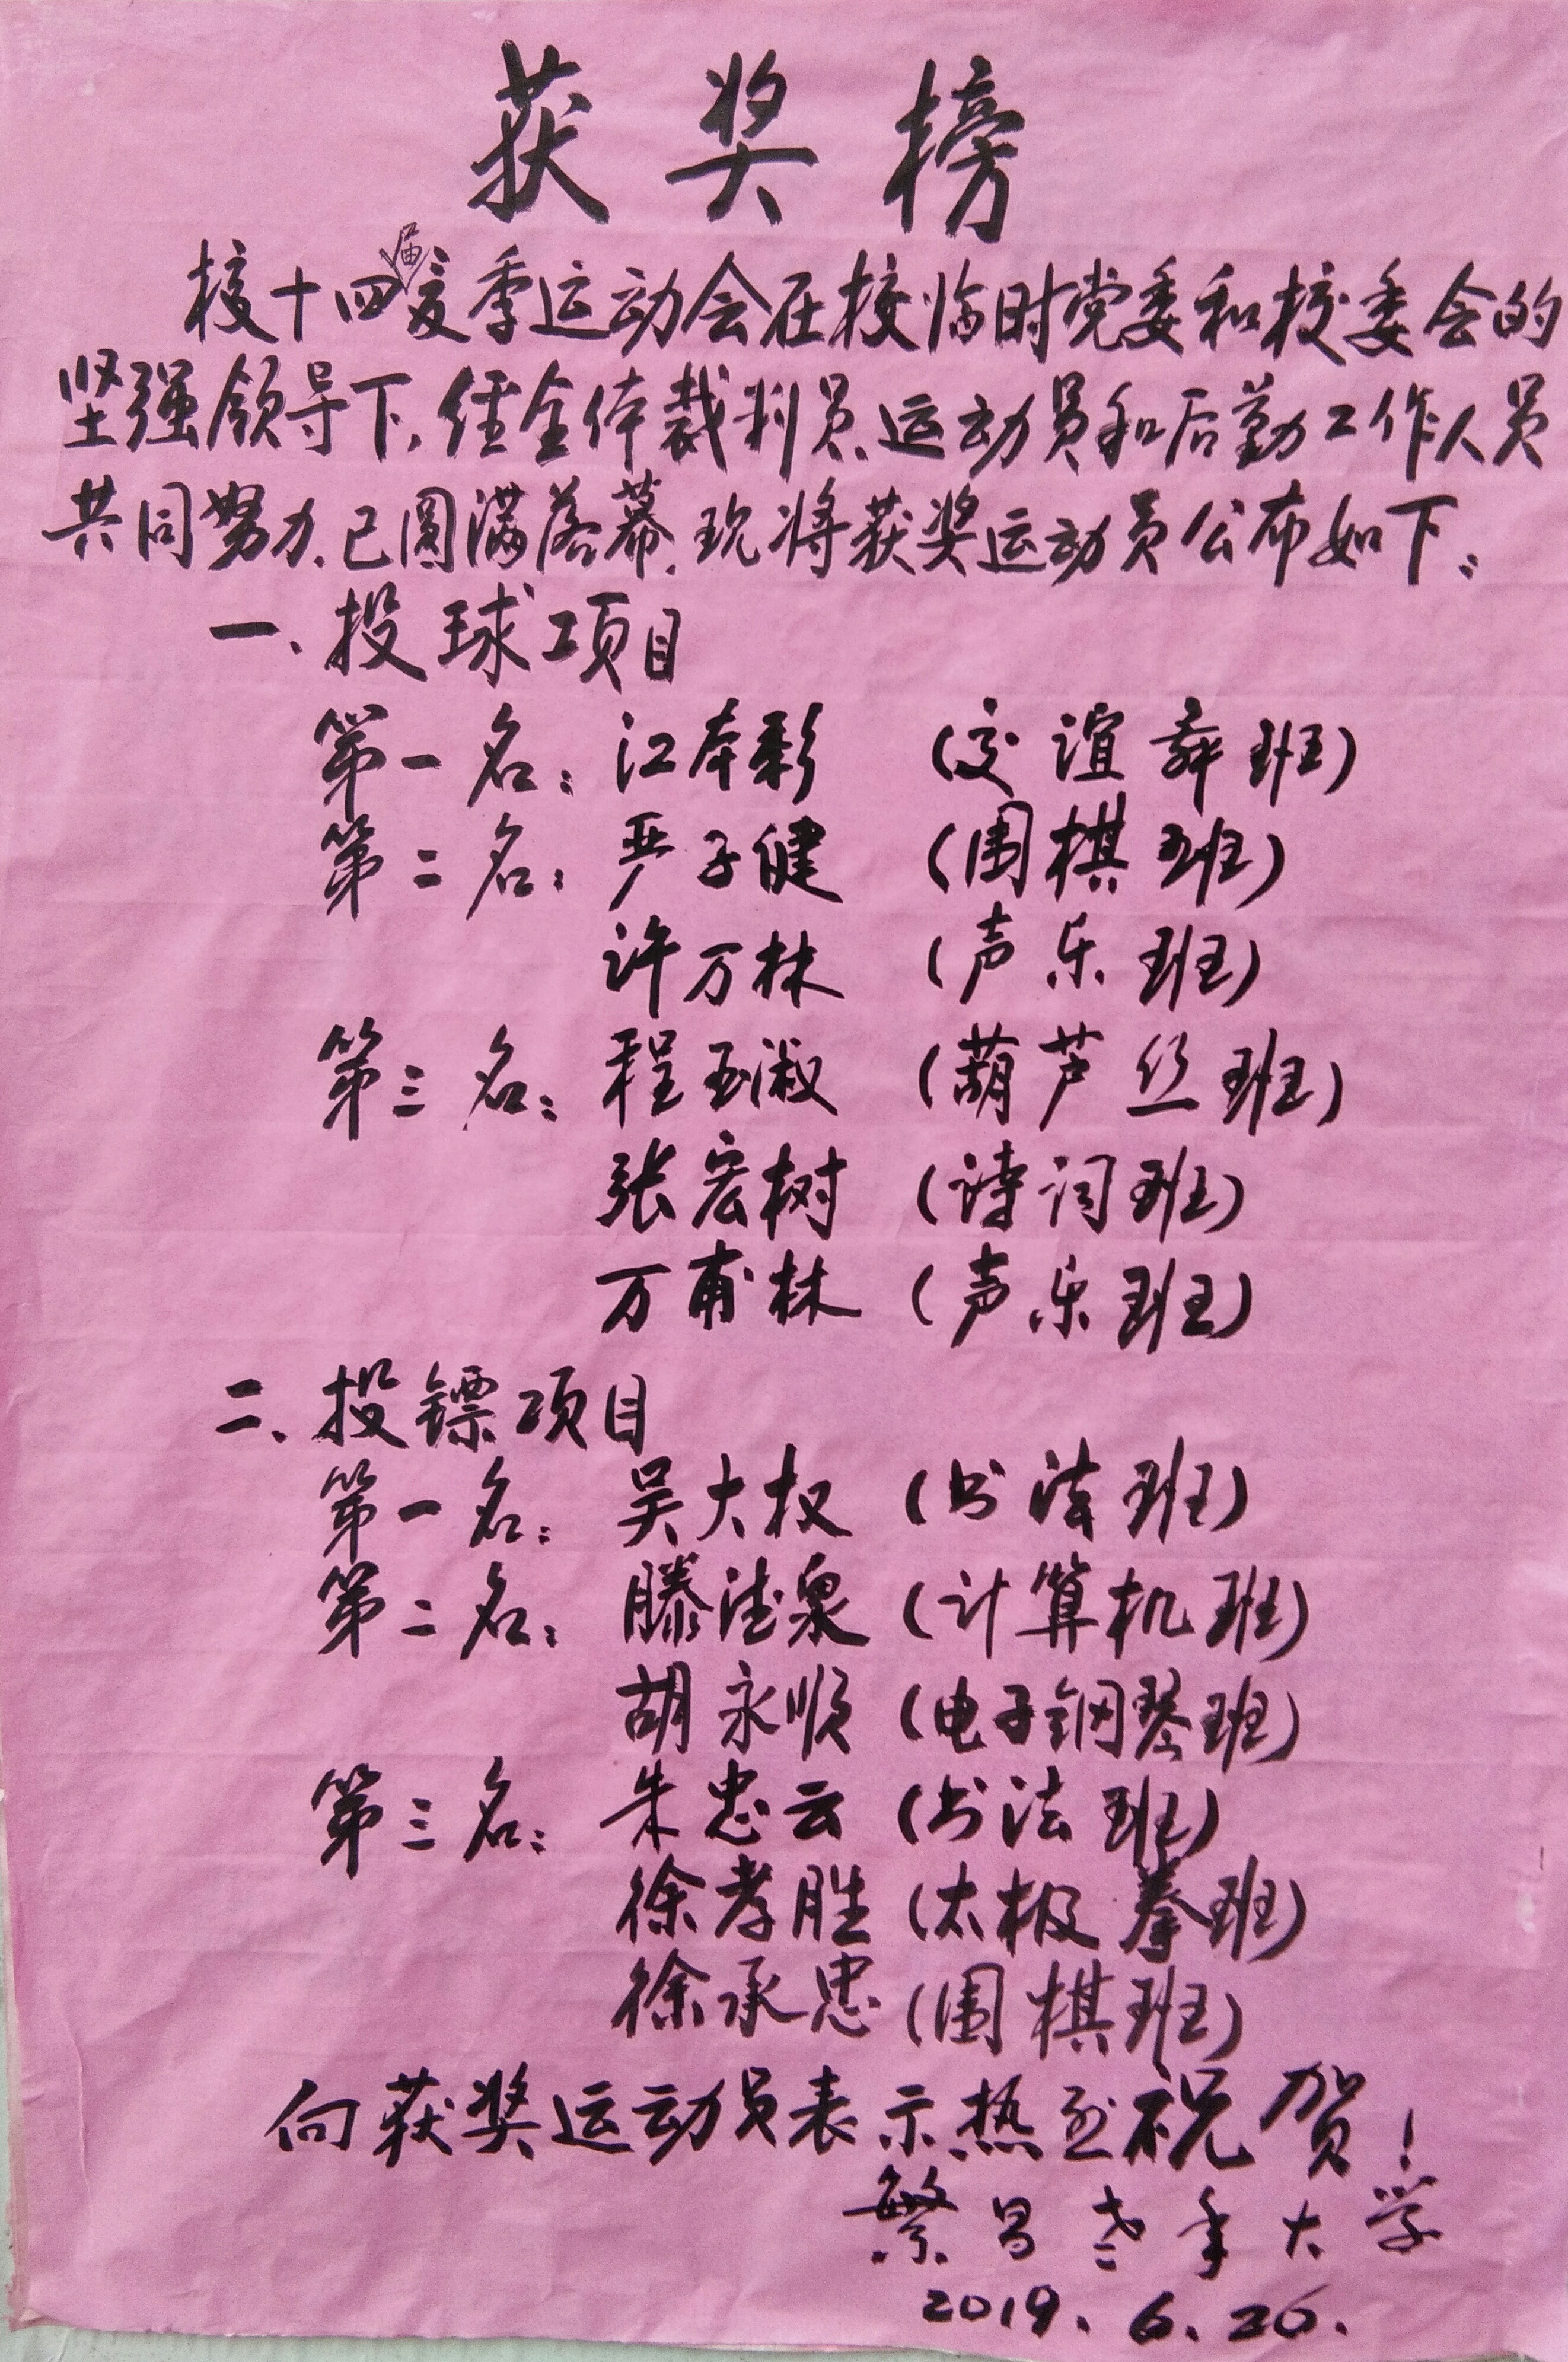 获奖榜
校十四届夏季运动会在校临时党委和校委会的
坚强领导下,经全体裁判员、运动员和后勤工作人员
共同努力,已圆满落幕,现将获奖运动员公布如下:
一、投球项目
第一名:江本彩 (交谊舞班)
第二名:严子健 (围棋班)
许万林 (声乐班)
第三名:程玉淑 (葫芦丝班)
张宏树 (诗词班)
万甫林 (声乐班)
二、投镖项目
第一名:吴大权 (书法班)
第二名:滕德泉 (计算机班)
胡永顺 (电子钢琴班)
第三名:朱忠云 (书法班)
徐孝胜 (太极拳班)
徐承忠 (围棋班)
向获奖运动员表示热烈祝贺!
繁昌老年大学
2019.6.26.